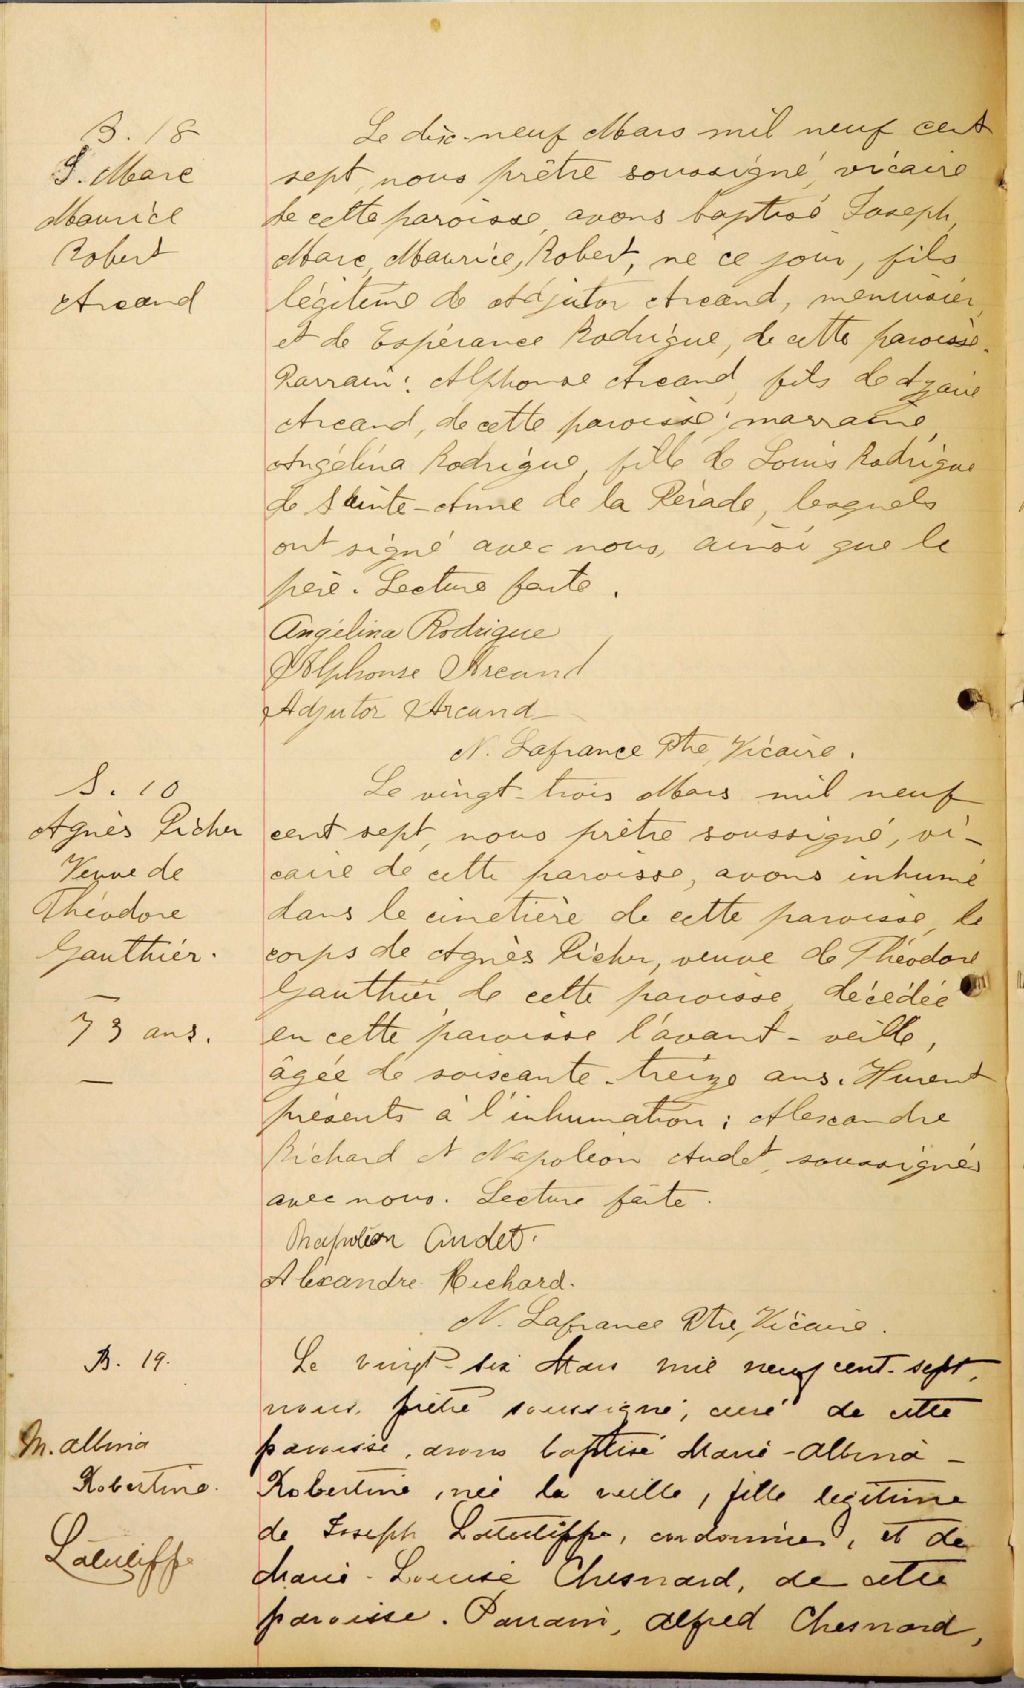 B. 18
J. Marc
Maurice
Robert
Arcand
Le dix-neuf Mars mil neuf cent
sept, nous prêtre soussigné, vicaire
de cette paroisse, avons baptisé Joseph,
Marc, Maurice, Robert, né ce jour, fils
légitime de Adjutor Arcand, menuisier,
et de Espérance Rodrigue, de cette paroisse.
Parrain: Alphonse Arcand, fils de Azarie
Arcand, de cette paroisse; marraine,
Angélina Rodrigue, fille de Louis Rodrigue
de Sainte-Anne de la Pérade, lesquels
ont signé avec nous, ainsi que le
père. Lecture faite.
Angélina Rodrigue
Alphonse Arcand
Adjutor Arcand
N. Lafrance Ptre, Vicaire.
S. 10
Agnès Picher
Veuve de
Théodore
Gauthier.
73 ans.
Le vingt-trois Mars mil neuf
cent sept, nous prêtre soussigné, vi-
caire de cette paroisse, avons inhumé
dans le cimetière de cette paroisse, le
corps de Agnès Picher, veuve de Théodore
Gauthier de cette paroisse, décédée
en cette paroisse l'avant-veille,
âgée de soixante-treize ans. Furent
présents à l'inhumation: Alexandre
Richard et Napoléon Audet, soussignés
avec nous. Lecture faite.
Napoléon Audet.
Alexandre Richard.
N. Lafrance Ptre, Vicaire.
B. 19.
M. Albina
Robertine.
Latulippe
Le vingt-six Mars mil neuf cent-sept,
nous, prêtre soussigné, curé de cette
paroisse, avons baptisé Marie-Albina-
Robertine, née la veille, fille légitime
de Joseph Latulippe, cordonnier, et de
Marie-Louise Chesnard, de cette
paroisse. Parrain, Alfred Chesnard,